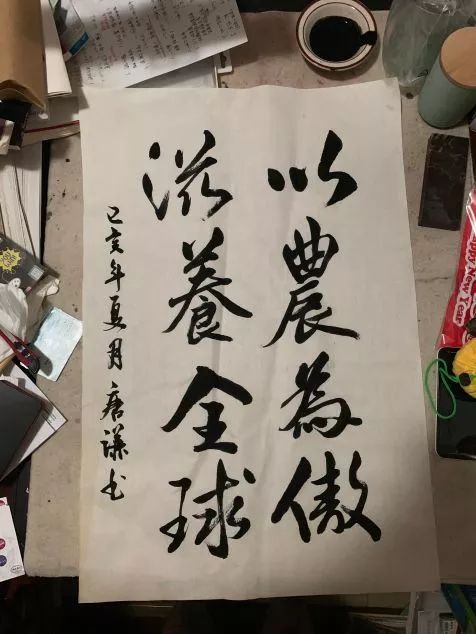 以農為傲
滋養全球
己亥年夏月唐謙书